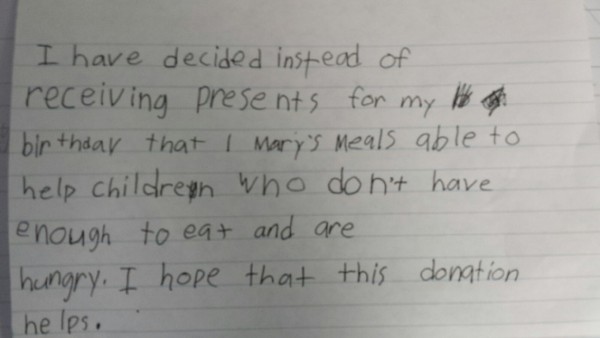 I have decided instead of
receiving presents for my
birthday that I Mary's Meals able to
help children who don't have
enough to eat and are
hungry. I hope that this donation
helps.